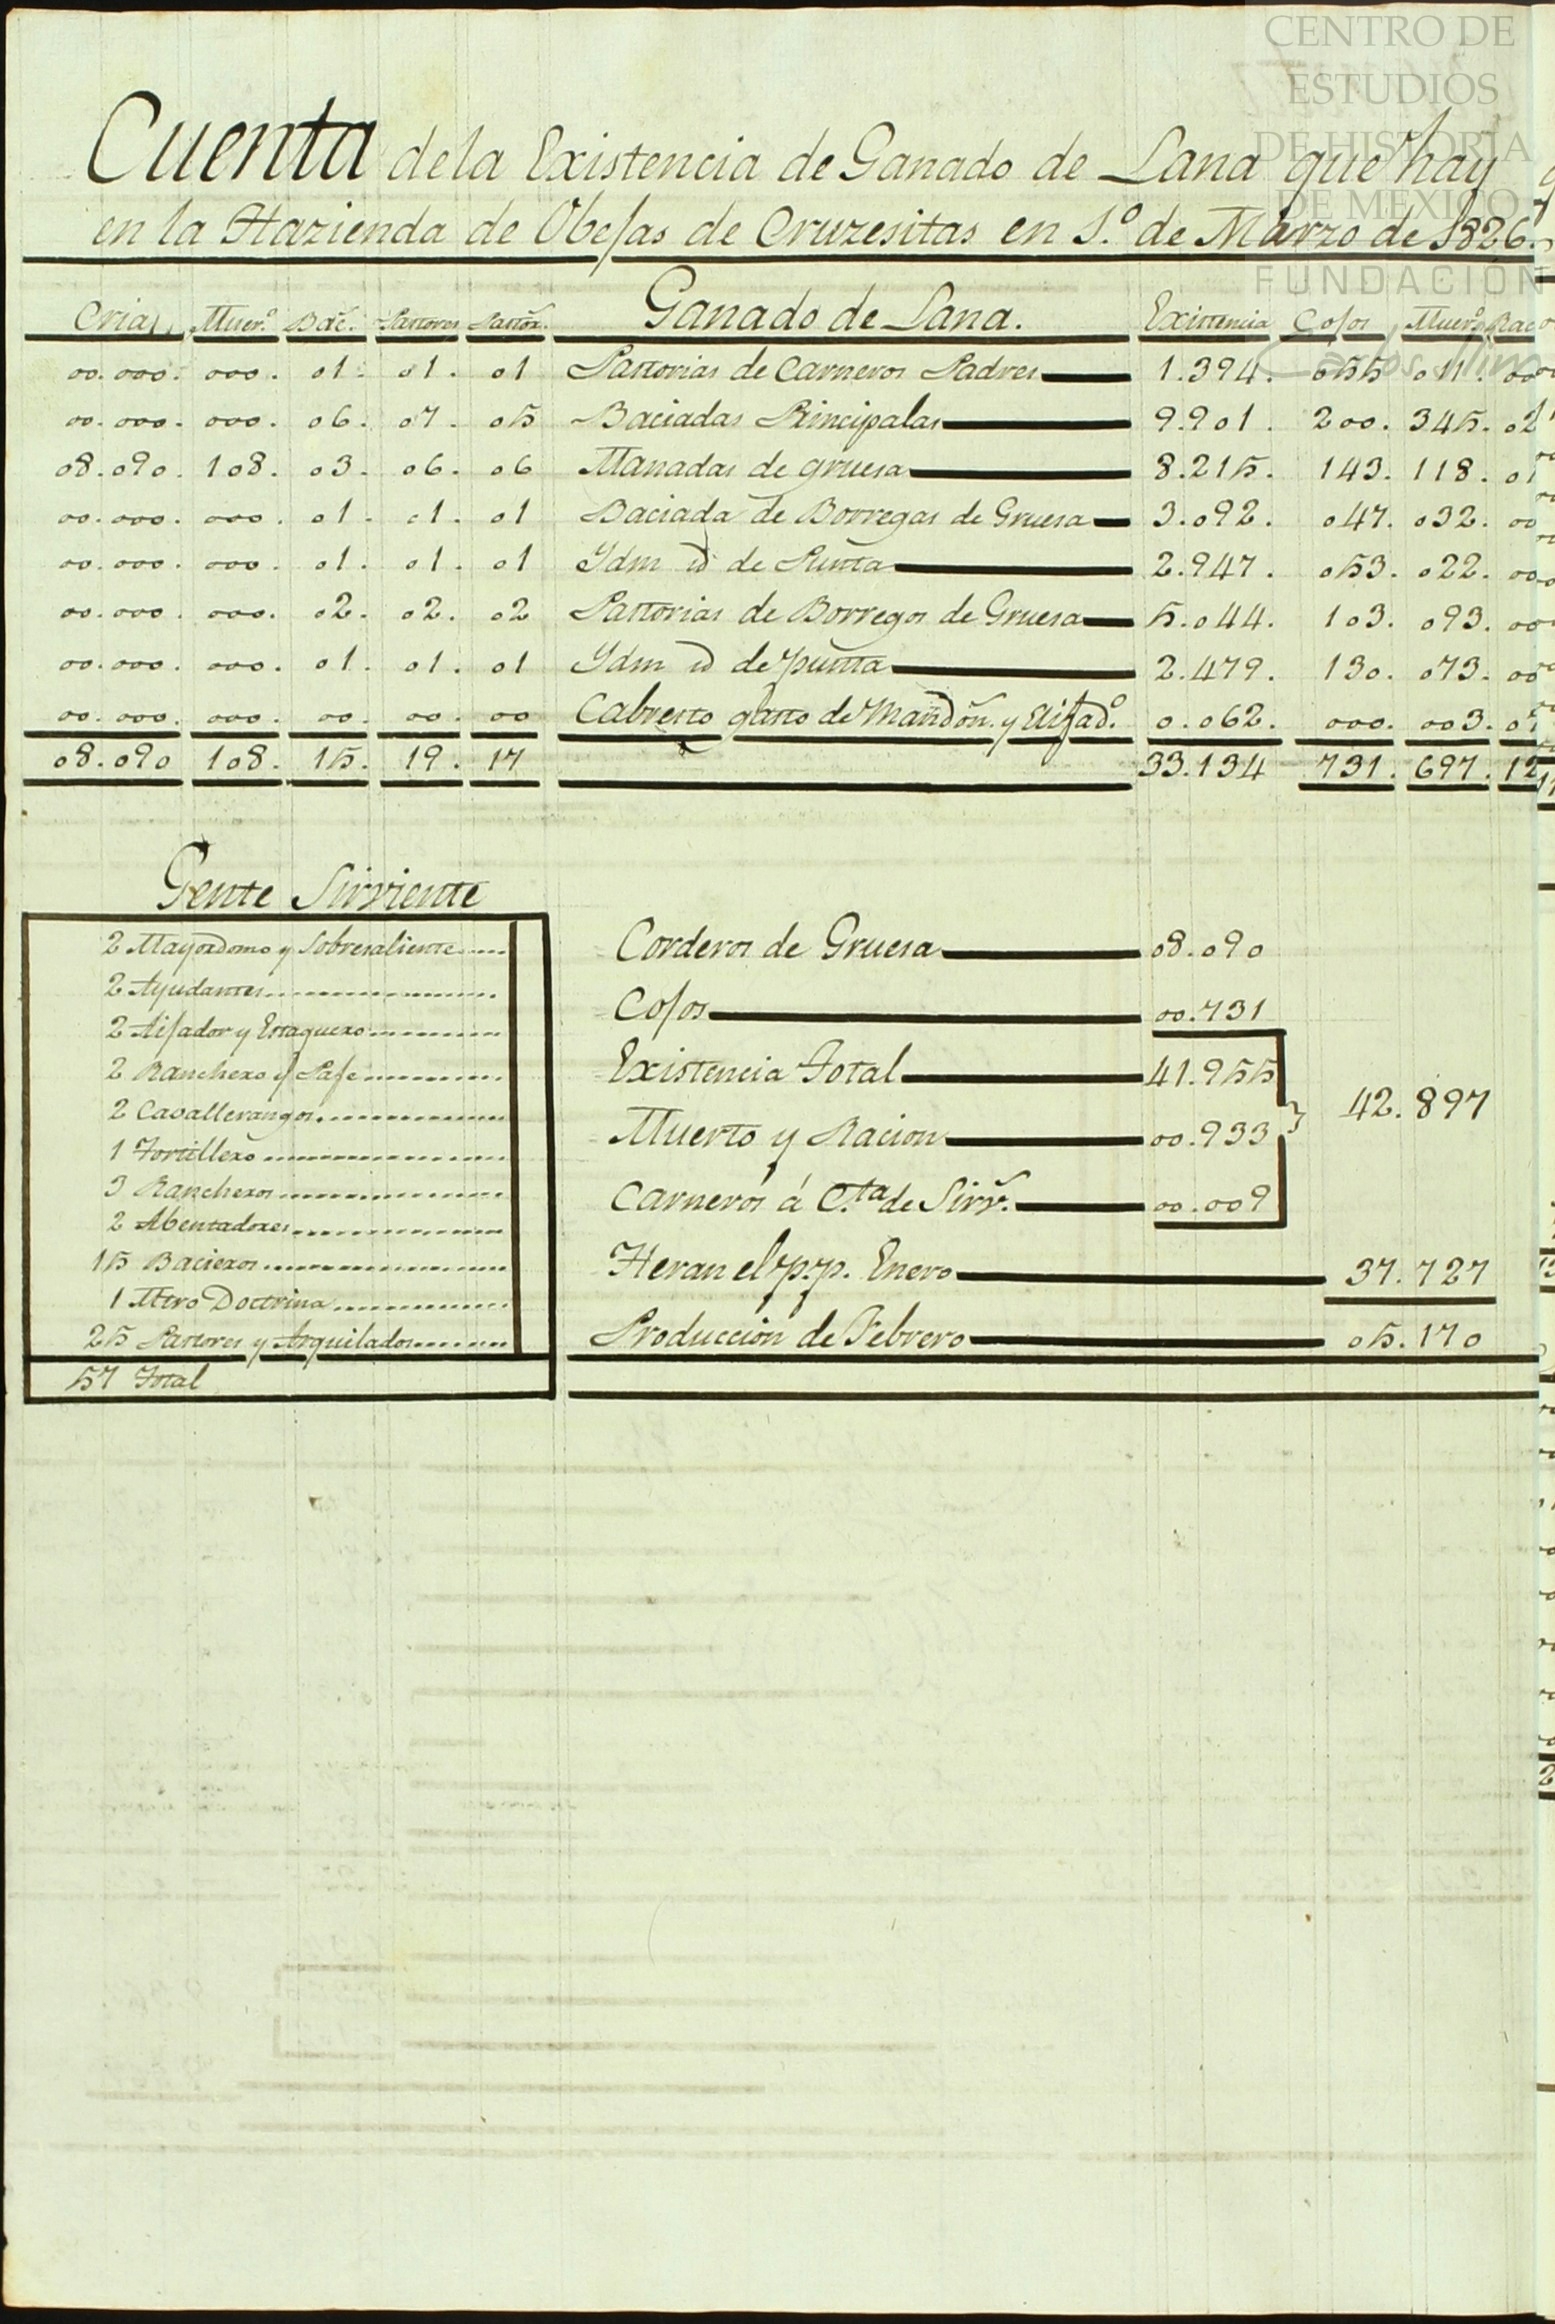 CENTRO DE
ESTUDIOS
DE HISTORIA
DE MEXICO
FUNDACIÓN
Carlos Slim
Cuenta de la Existencia de Ganado de Lana que hay
en la Hazienda de Obejas de Cruzesitas en 1.º de Marzo de 1826.
Cria Muer.º Bac. Pastores Pastor. Ganado de Lana. Existencia Cojos Muer.º Rac
00.000. 000. 01. 01. 01 Pastorias de Carneros Padres 1.394. 055. 011. 00
00.000. 000. 06. 07. 05 Baciadas Principalas 9.901. 200. 345. 02
08.090. 108. 03. 06. 06 Manadas de gruesa 8.215. 143. 118. 01
00.000. 000. 01. 01. 01 Baciada de Borregas de Gruesa 3.092. 047. 032. 00
00.000. 000. 01. 01. 01 Ydm id de Punta 2.947. 053. 022. 00
00.000. 000. 02. 02. 02 Pastorias de Borregos de Gruesa 5.044. 103. 093. 00
00.000. 000. 01. 01. 01 Ydm id de punta 2.479. 130. 073. 00
00.000. 000. 00. 00. 00 Cabresto gasto de Mandón. y Aijad.º 0.062. 000. 003. 0
08.090 108. 15. 19. 17 33.134 731. 697. 12
Gente Sirviente
2 Mayordomo y Sobresaliente
2 Ayudantes
2 Aijador y Estaquero
2 Ranchero y Paje
2 Cavallerangos
1 Tortillero
3 Rancheros
2 Abentadores
15 Bacieros
1 Mtro Doctrina
25 Pastores y Arquilados
57 Total
Corderos de Gruesa 08.090
Cojos 00.731
Existencia Total 41.955
42.897
Muerto y Racion 00.933
Carneros á C.ta de Sirv. 00.009
Heran el p.p. Enero 37.727
Producción de Febrero 05.170